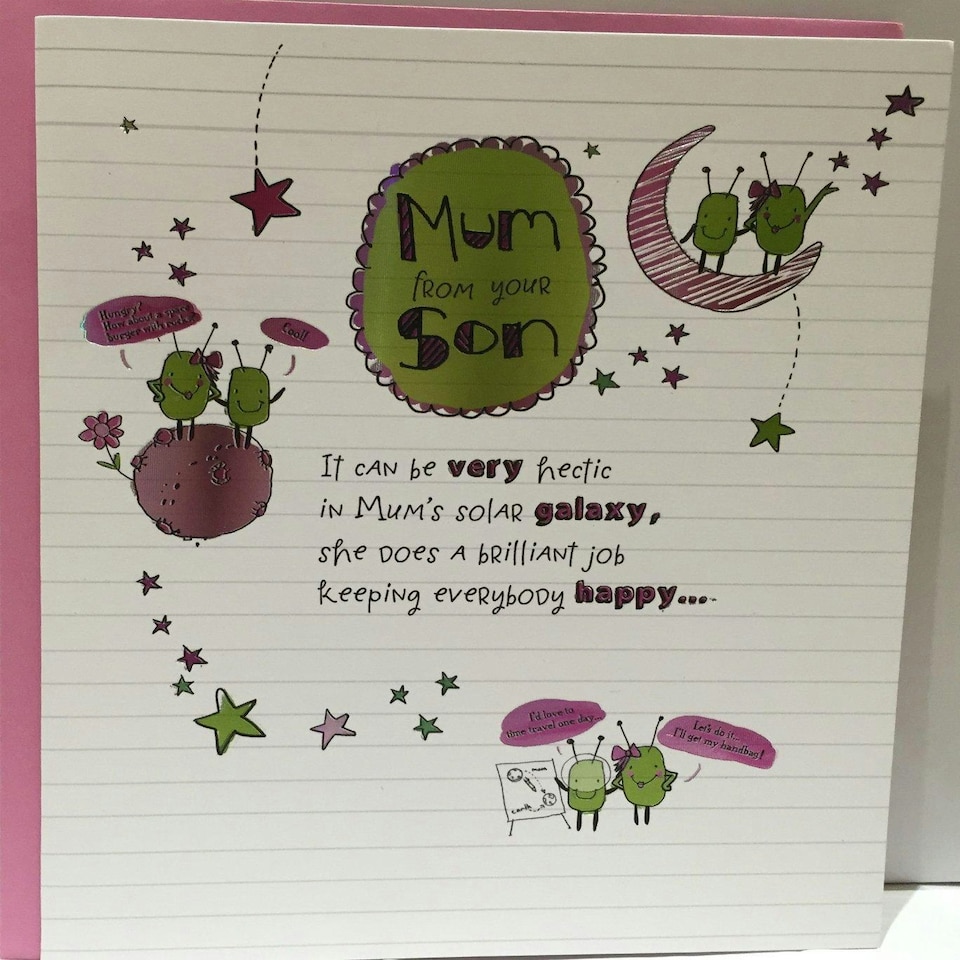 Mum
from your
Son
Hungry?
How about a space
burger with rocks?
Cool!
It can be very hectic
in Mum's solar galaxy,
she does a brilliant job
keeping everybody happy...
I'd love to
time travel one day...
Let's do it...
I'll get my handbag!
moon
earth